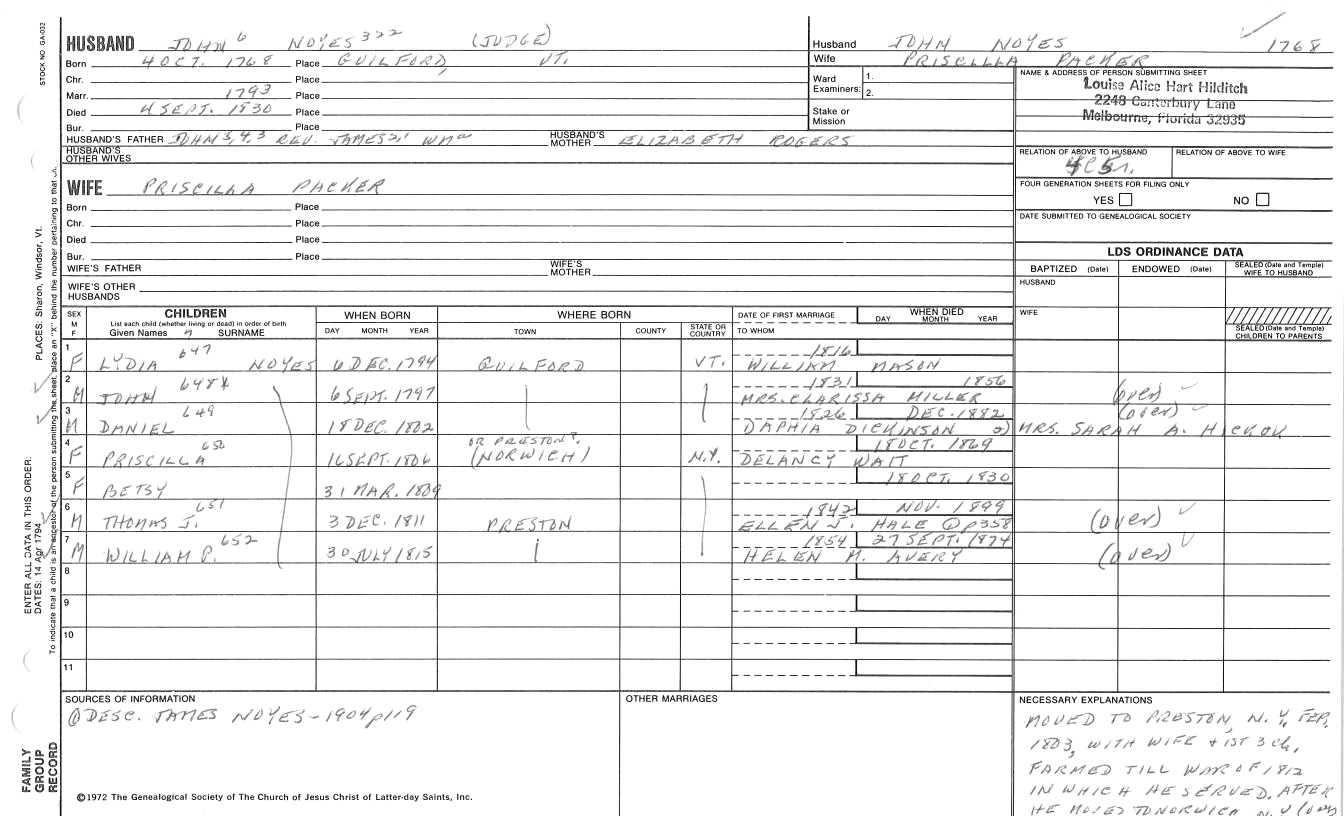 STOCK NO GA-032
HUSBAND JOHN 6 NOYES 322 (JUDGE)
Born 4 OCT. 1768 Place GUILFORD, VT.
Chr. Place
Marr. 1793 Place
Died 4 SEPT. 1830 Place
Bur. Place
HUSBAND'S FATHER JOHN 3,4,3 REV. JAMES 2,1 WMa HUSBAND'S MOTHER ELIZABETH ROGERS
HUSBAND'S OTHER WIVES
WIFE PRISCILLA PACKER
Born Place
Chr. Place
Died Place
Bur. Place
WIFE'S FATHER WIFE'S MOTHER
WIFE'S OTHER HUSBANDS
Husband JOHN NOYES 1768
Wife PRISCILLA PACKER
Ward Examiners: 1. 2.
Stake or Mission
NAME & ADDRESS OF PERSON SUBMITTING SHEET
Louise Alice Hart Hilditch
2248 Canterbury Lane
Melbourne, Florida 32935
RELATION OF ABOVE TO HUSBAND RELATION OF ABOVE TO WIFE
FOUR GENERATION SHEETS FOR FILING ONLY
YES NO
DATE SUBMITTED TO GENEALOGICAL SOCIETY
LDS ORDINANCE DATA
BAPTIZED (Date) ENDOWED (Date) SEALED (Date and Temple) WIFE TO HUSBAND
HUSBAND
WIFE
SEALED (Date and Temple) CHILDREN TO PARENTS
SEX M F CHILDREN WHEN BORN WHERE BORN DATE OF FIRST MARRIAGE WHEN DIED
List each child (whether living or dead) in order of birth
Given Names 7 SURNAME DAY MONTH YEAR TOWN COUNTY STATE OR COUNTRY TO WHOM DAY MONTH YEAR
1 647 1816
F LYDIA NOYES 6 DEC. 1794 GUILFORD VT. WILLIAM MASON
2 648X 1831 1856
M JOHN 6 SEPT. 1797 MRS. CLARISSA MILLER (over)
3 649 1826 DEC. 1882 (over)
M DANIEL 18 DEC. 1802 DAPHIA DICKINSON 2) MRS. SARAH A. HICKOK
4 650 OR PRESTON?. 18 OCT. 1869
F PRISCILLA 16 SEPT. 1806 (NORWICH) N.Y. DELANCY WAIT
5 18 OCT. 1830
F BETSY 31 MAR. 1809
6 651 1842 NOV. 1899
M THOMAS J. 3 DEC. 1811 PRESTON ELLEN J. HALE @p358 (over)
7 652 1854 27 SEPT. 1874
M WILLIAM P. 30 JULY 1815 HELEN M. AVERY (over)
8
9
10
11
SOURCES OF INFORMATION OTHER MARRIAGES NECESSARY EXPLANATIONS
① DESC. JAMES NOYES-1904 p119
MOVED TO PRESTON, N.Y. FEB.
1803, WITH WIFE + 1ST 3 ch.
FARMED TILL WAR OF 1812
IN WHICH HE SERVED. AFTER
HE MOVED TO NORWICH, N.Y. (over)
©1972 The Genealogical Society of The Church of Jesus Christ of Latter-day Saints, Inc.
ENTER ALL DATA IN THIS ORDER:
DATES: 14 Apr 1794 PLACES: Sharon, Windsor, Vt.
To indicate that a child is an ancestor of the person submitting the sheet, place an "X" behind the number pertaining to that
FAMILY
GROUP
RECORD